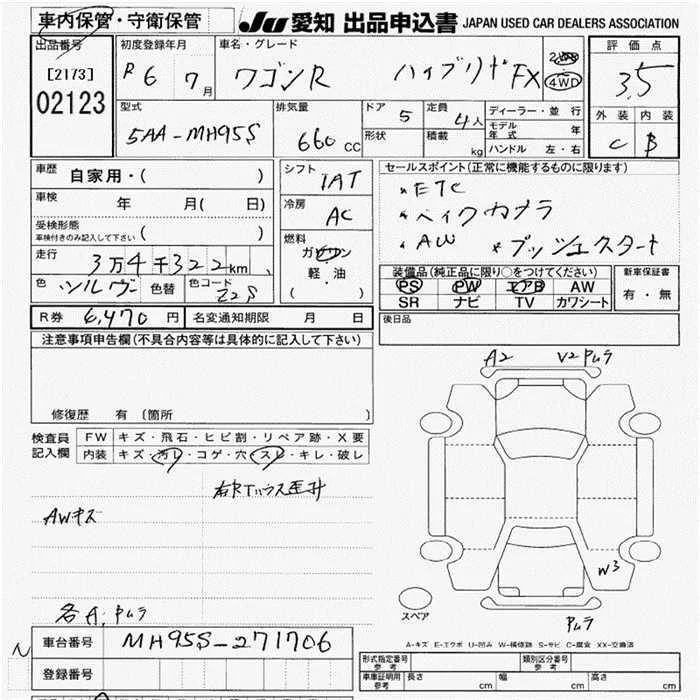 車内保管・守衛保管
JU 愛知 出品申込書 JAPAN USED CAR DEALERS ASSOCIATION
出品番号
[2173]
02123
初度登録年月
R 6 7月
車名・グレード
ワゴンR ハイブリッド FX
4WD
評価点
3.5
外装 内装
C B
型式
5AA-MH95S
排気量
660 CC
ドア 5
形状
定員 4人
積載 kg
ディーラー・並行
モデル年式 年
ハンドル 左・右
車歴 自家用・( )
車検 年 月( 日)
受検形態
車検付きのみ記入して下さい ( )
走行 3万4千322km
色 シルヴ 色替 色コード Z2S
シフト
IAT
冷房
AC
燃料
ガソリン
軽・油
( )
セールスポイント(正常に機能するものに限ります)
・ETC
・ベイクカメラ
・AW ・プッシュスタート
装備品(純正品に限り○をつけてください)
PS PW エアB AW
SR ナビ TV カワシート
新車保証書
有・無
R券 6,470円 名変通知期限 月 日
後日品
注意事項申告欄(不具合内容等は具体的に記入して下さい)
修復歴 有 〔箇所 〕
検査員記入欄
FW キズ・飛石・ヒビ割・リペア跡・X要
内装 キズ・汚レ・コゲ・穴・スレ・キレ・破レ
AWキズ
各A、ムラ
A2 V2 ムラ
W3
ムラ
スペア
A-キズ E-エクボ U-凹み W-補修跡 S-サビ C-腐食 XX-交換済
N
車台番号 MH95S-271706
登録番号
形式指定番号 参考
類別区分番号 参考
車庫証明用 参考 長さ cm 幅 cm 高さ cm